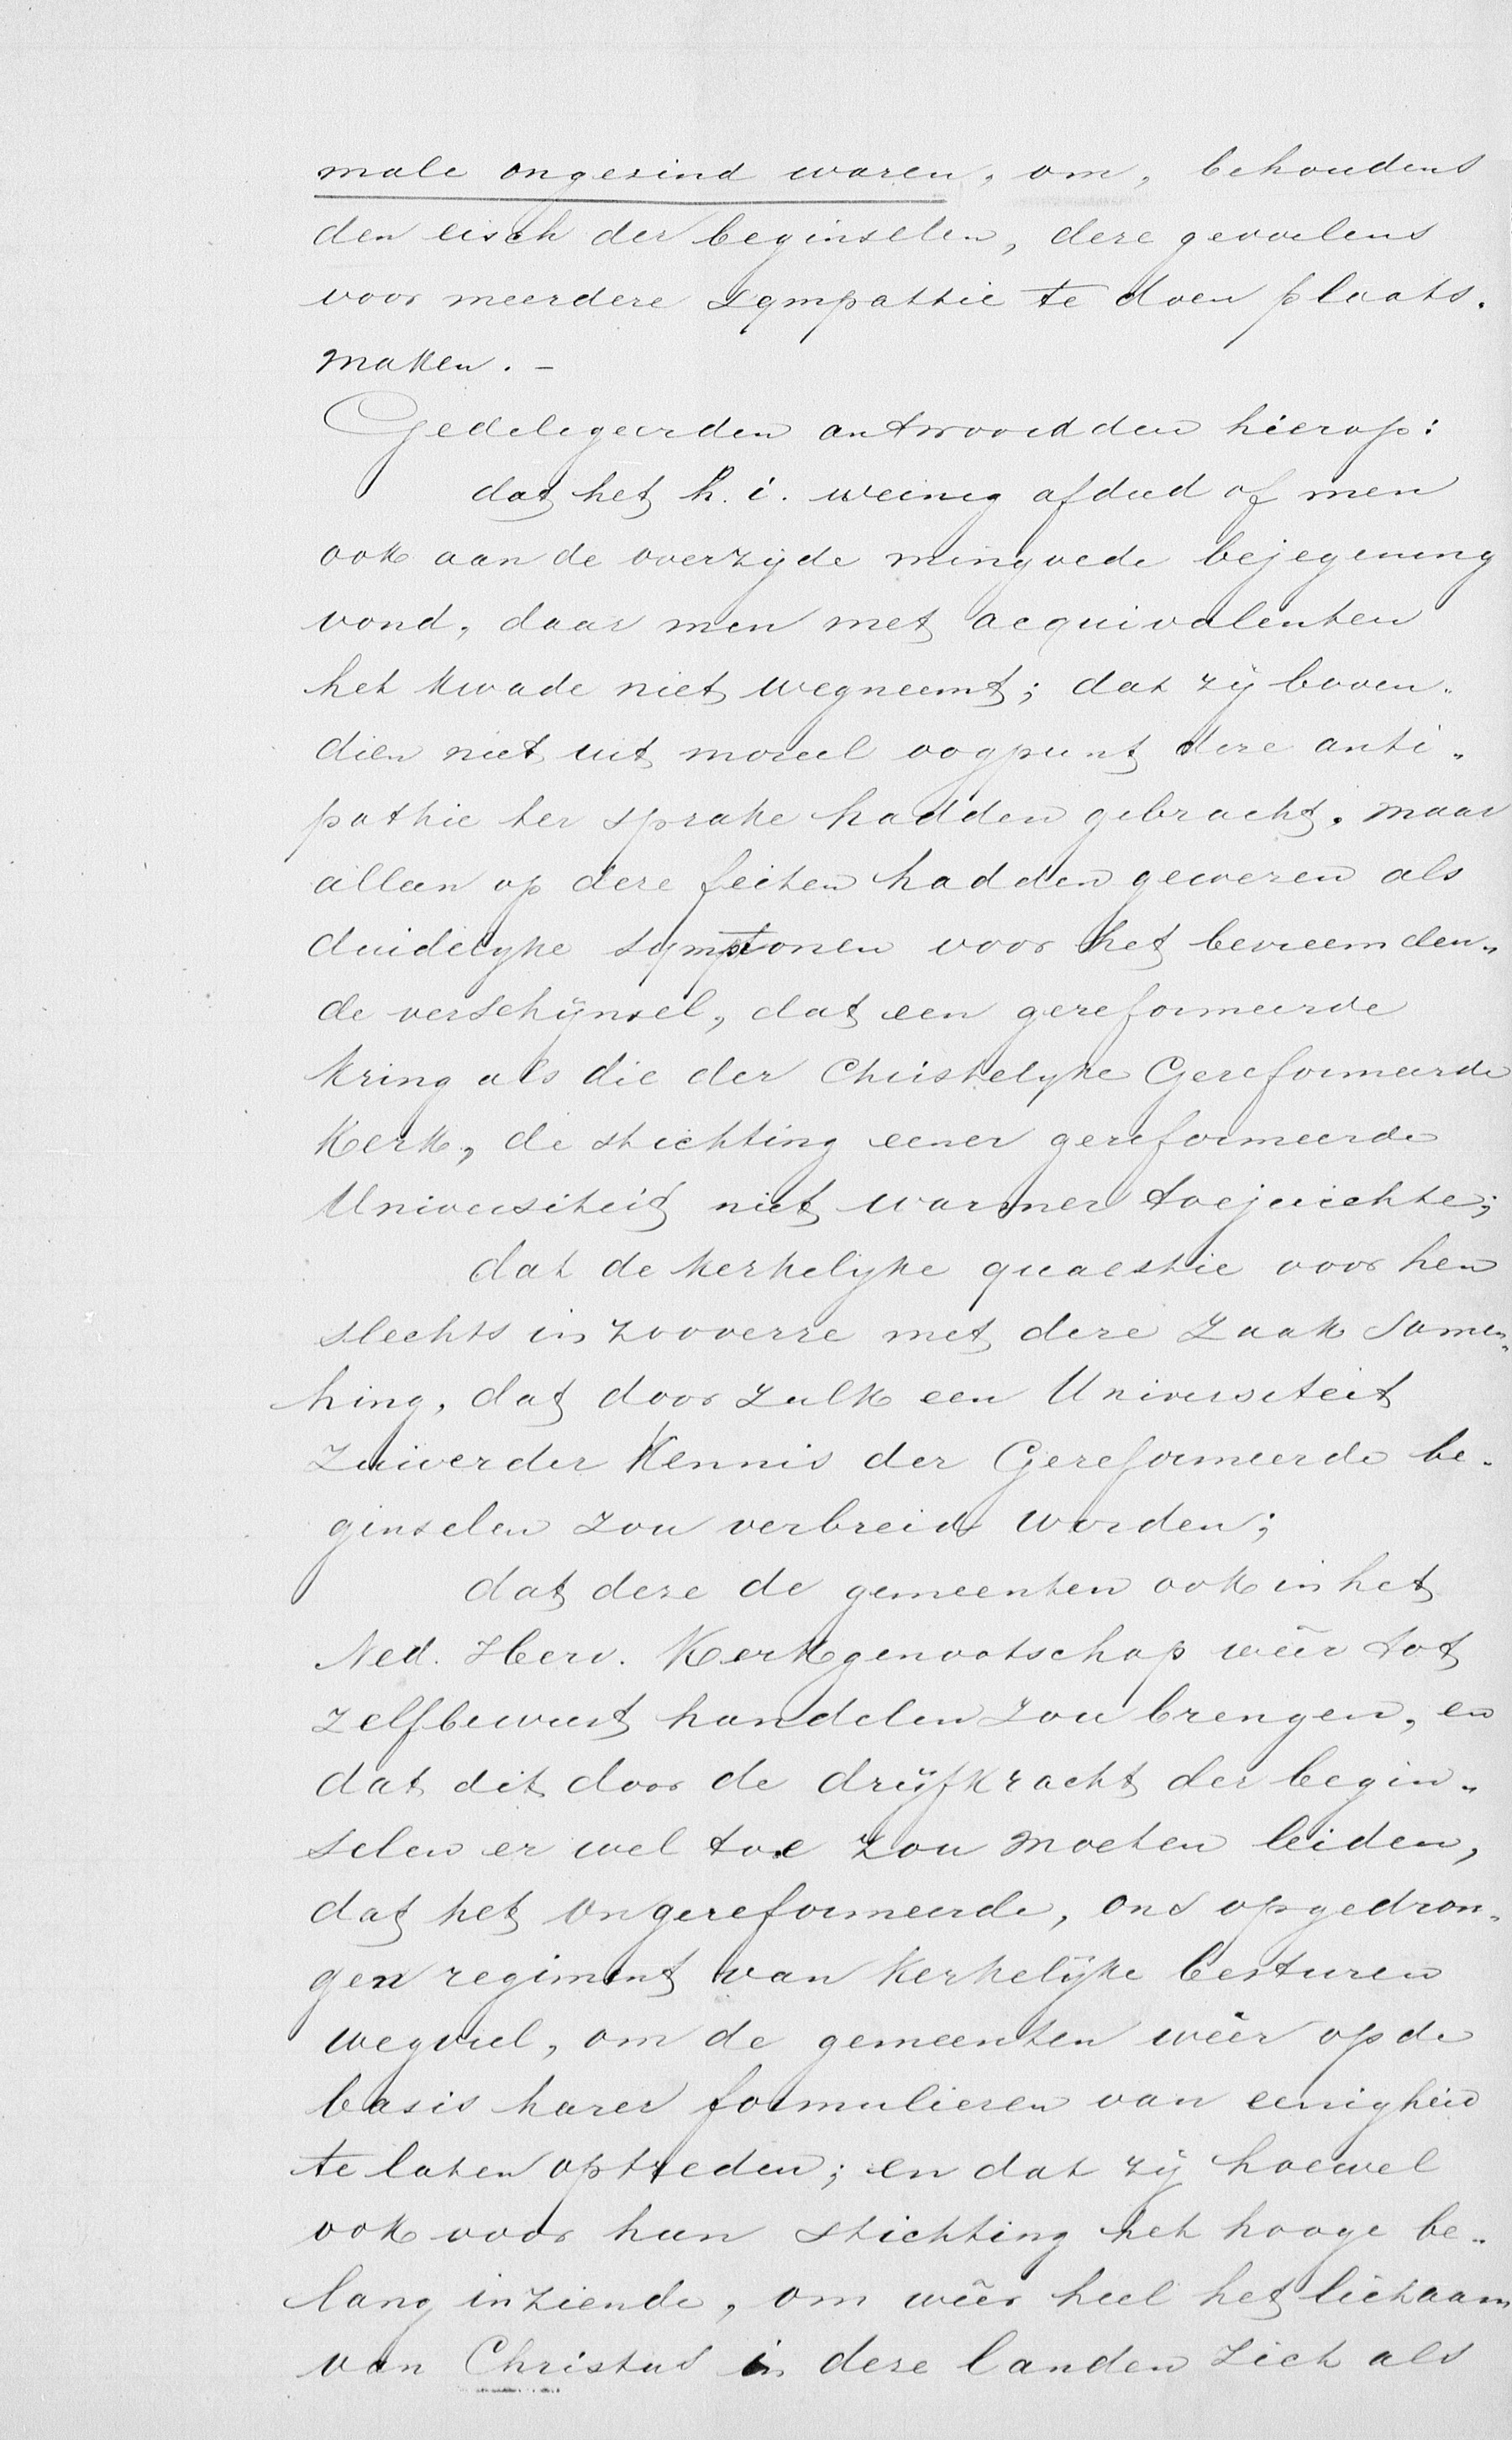 male ongezind waren, om, behoudens
den eisch der beginselen, deze gevoelens
voor meerdere sympathie te doen plaats-
maken. -
Gedelegeerden antwoordden hierop:
dat het h. i. weinig afdeed of men
ook aan de overzijde mingoede bejegening
vond, daar men met aequivalenten
het kwade niet wegneemt; dat zij boven-
dien niet uit moreel oogpunt deze anti-
pathie ter sprake hadden gebracht, maar
alleen op deze feiten hadden gewezen als
duidelijke symptonen voor het bevreemden-
de verschijnsel, dat een gereformeerde
kring als die der Christelijke Gereformeerde
Kerk, de stichting eener gereformeerde
Universiteit niet warmer toejuichte;
dat de kerkelijke quaestie voor hen
slechts in zooverre met deze zaak samen-
hing, dat door zulk een Universiteit
zuiverder kennis der Gereformeerde be-
ginselen zou verbreid worden;
dat deze de gemeenten ook in het
Ned. Herv. Kerkgenootschap wêer tot
zelfbewust handelen zou brengen, en
dat dit door de drijfkracht der begin-
selen er wel toe zou moeten leiden,
dat het ongereformeerde, ons opgedron-
gen regiment van kerkelijke besturen
wegviel, om de gemeenten wêer op de
basis harer formulieren van eenigheid
te laten optreden; en dat zij hoewel
ook voor hun stichting het hooge be-
lang inziende, om wêer heel het lichaam
van Christus in deze landen zich als